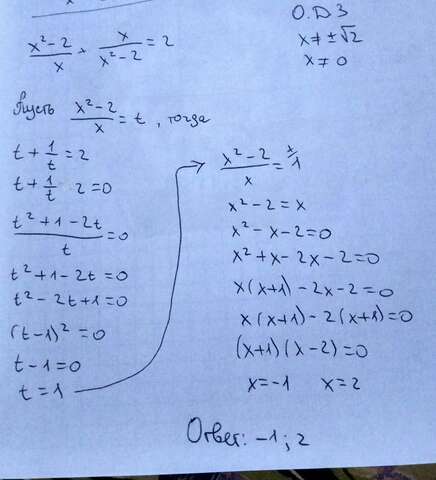 x² - 2 / x + x / x² - 2 = 2
О.Д З
x ≠ ± √2
x ≠ 0
Пусть x² - 2 / x = t , тогда
t + 1/t = 2
t + 1/t 2 = 0
t² + 1 - 2t / t = 0
t² + 1 - 2t = 0
t² - 2t + 1 = 0
(t - 1)² = 0
t - 1 = 0
t = 1
x² - 2 / x = 1
x² - 2 = x
x² - x - 2 = 0
x² + x - 2x - 2 = 0
x(x+1) - 2x - 2 = 0
x(x+1) - 2(x+1) = 0
(x+1)(x-2) = 0
x = -1 x = 2
Ответ: -1 ; 2